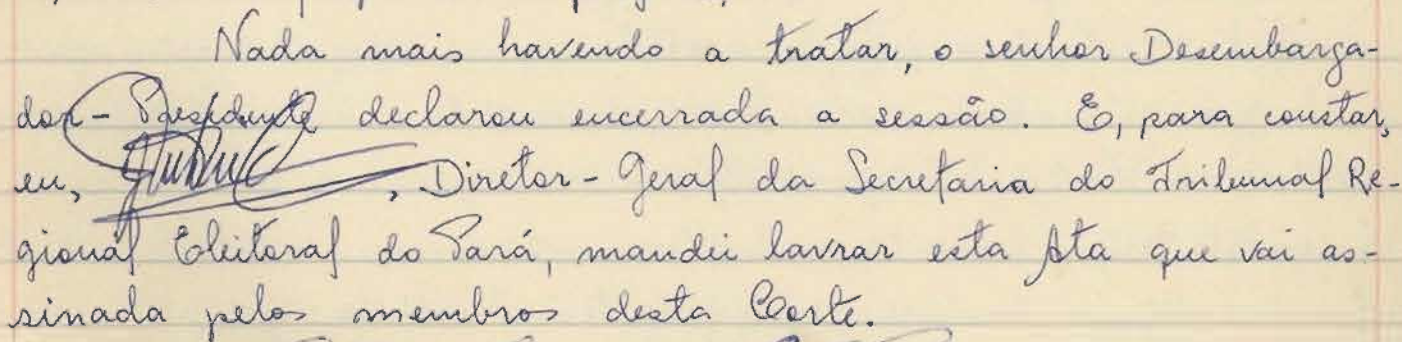 Nada mais havendo a tratar, o senhor Desembarga-
dor-Presidente declarou encerrada a sessão. E, para constar,
eu, , Diretor-Geral da Secretaria do Tribunal Re-
gional Eleitoral do Pará, mandei lavrar esta Ata que vai as-
sinada pelos membros desta Corte.